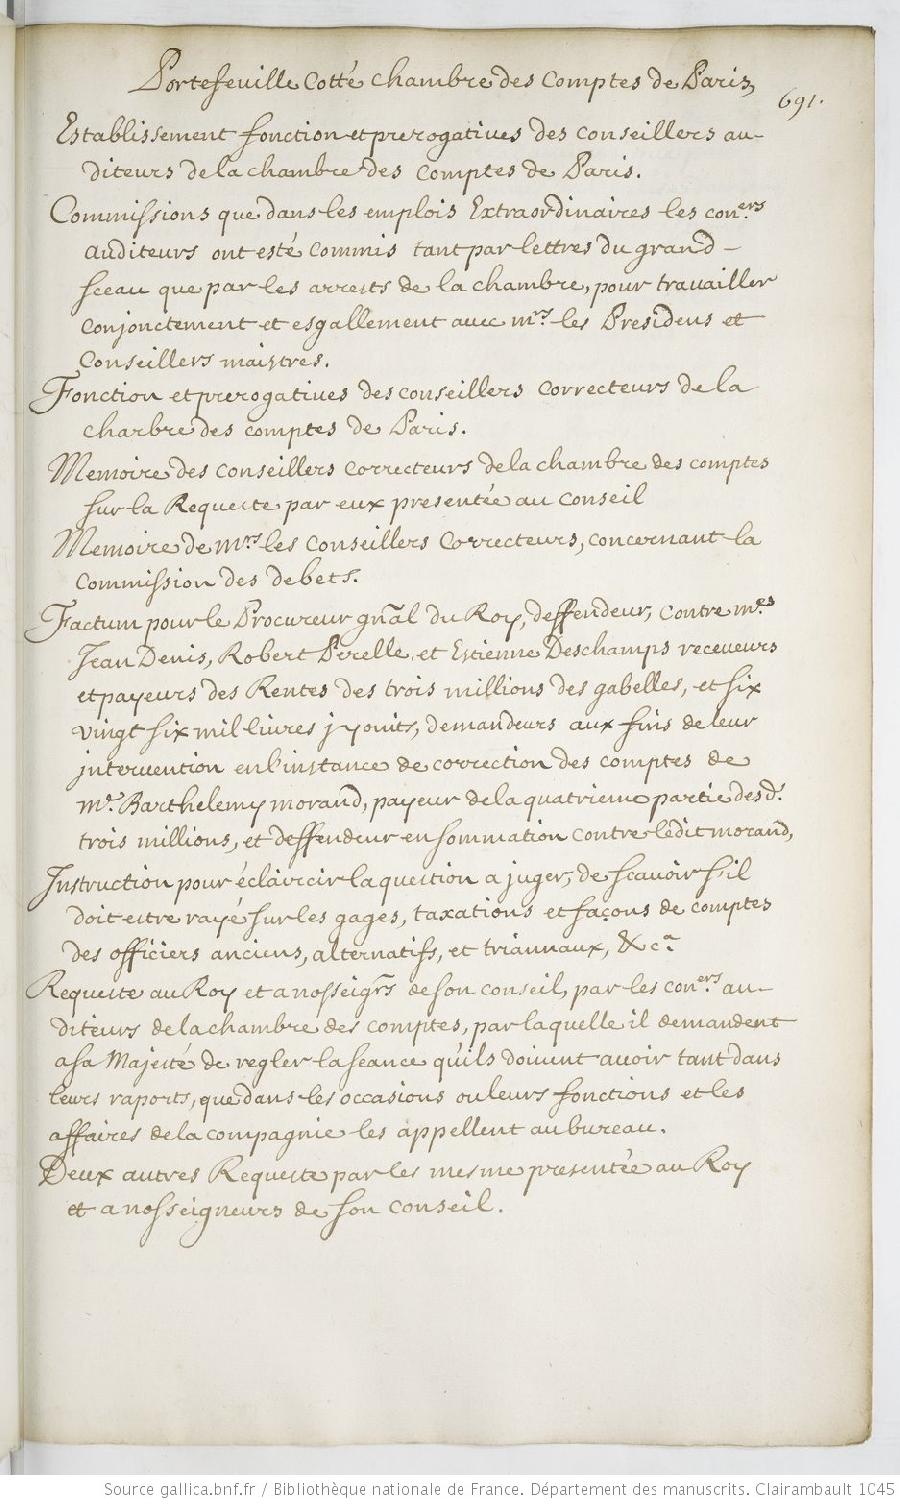 Portefeuille Cotté Chambre des Comptes de Paris,
691.
Establissement fonction et prerogatives des conseillers au-
diteurs de la chambre des Comptes de Paris.
Commissions que dans les emplois Extraordinaires les con.ers
auditeurs ont esté commis tant par lettres du grand-
sceau que par les arrests de la chambre, pour travailler
conjonctement et esgallement avec m.rs les Presidens et
Conseillers maistres.
Fonction et prerogatives des conseillers correcteurs de la
charbre des comptes de Paris.
Memoire des conseillers correcteurs de la chambre des comptes
sur la Requeste par eux presentée au conseil
Memoire de m.rs les conseillers correcteurs, concernant la
commission des debets.
Factum pour le Procureur gnãl du Roy, deffendeur, contre m.es
Jean Denis, Robert Perelle, et Estienne Deschamps receveurs
et payeurs des Rentes des trois millions des gabelles, et six
vingt six mil livres j yoints, demandeurs aux fins de leur
jntervention en l'instance de correction des comptes de
m.e Barthelemy morand, payeur de la quatrieme partie des d.
trois millions, et deffendeur en sommation contre ledit morand,
Jnstruction pour éclaircir la question a juger, de scavoir s'il
doit estre rayé sur les gages, taxations et façons de comptes
des officiers anciens, alternatifs, et triannaux, &c.a
Requeste au Roy et a nosseigrs de son conseil, par les con.ers au-
diteurs de la chambre des comptes, par laquelle il demandent
a sa Majesté de regler la seance qu'ils doivent avoir tant dans
leurs raports, que dans les occasions ou leurs fonctions et les
affaires de la compagnie les appellent au bureau.
Deux autres Requeste par les mesme presentée au Roy
et a nosseigneurs de son conseil.
Source gallica.bnf.fr / Bibliothèque nationale de France. Département des manuscrits. Clairambault 1045